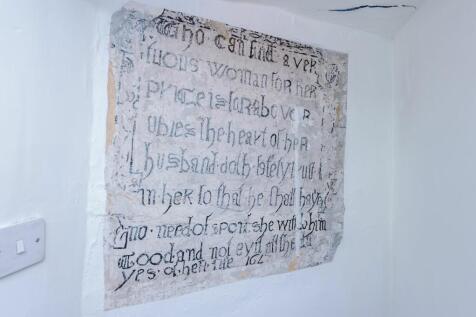 Who can find a ver
tuous woman for her
price is far above r
ubies the heart of her
husband doth safely trust
in her so that he shall haue
no need of spoyl she will do him
Good and not evil all the da
yes of her life 16